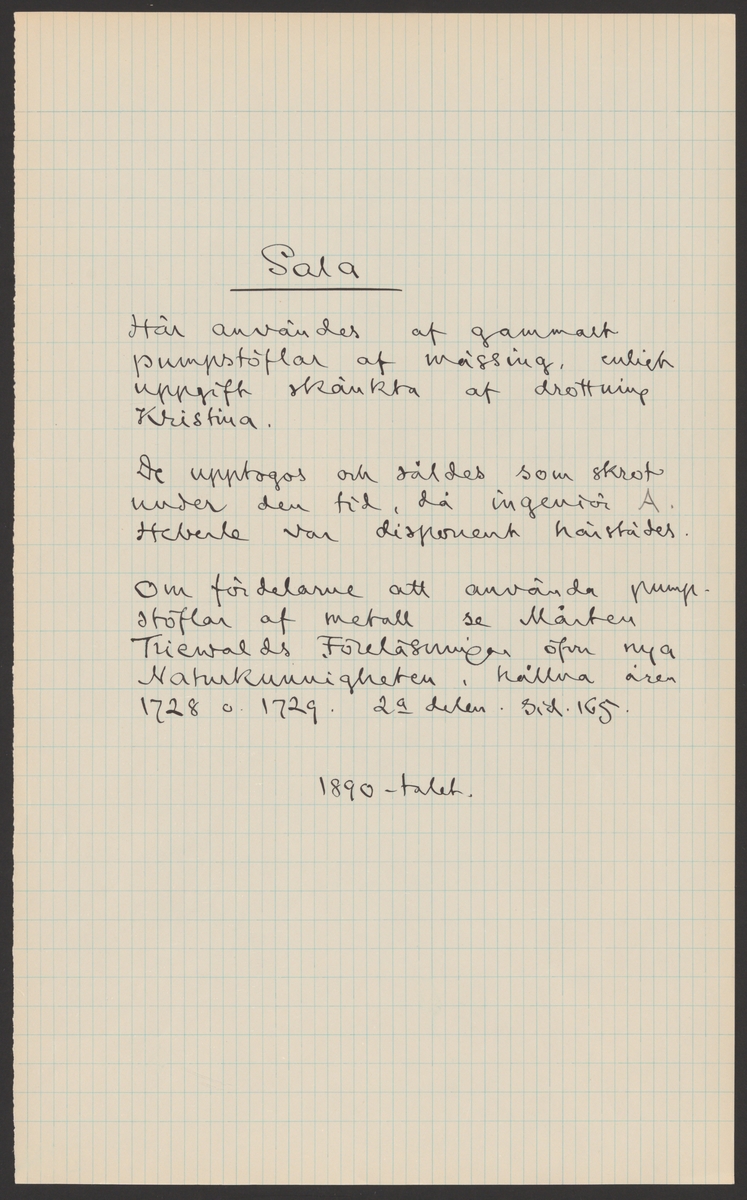 Sala
Här användes af gammalt
pumpstöflar af mässing, enligt
uppgift skänkta af drottning
Kristina.
De upptogos och såldes som skrot
under den tid, då ingeniör A.
Heberle var disponent härstädes.
Om fördelarne att använda pump-
stöflar af metall se Mårten
Triewalds Föreläsningar öfver nya
Naturkunnigheten, hållna åren
1728 o. 1729. 2a delen. Sid. 165.
1890-talet.